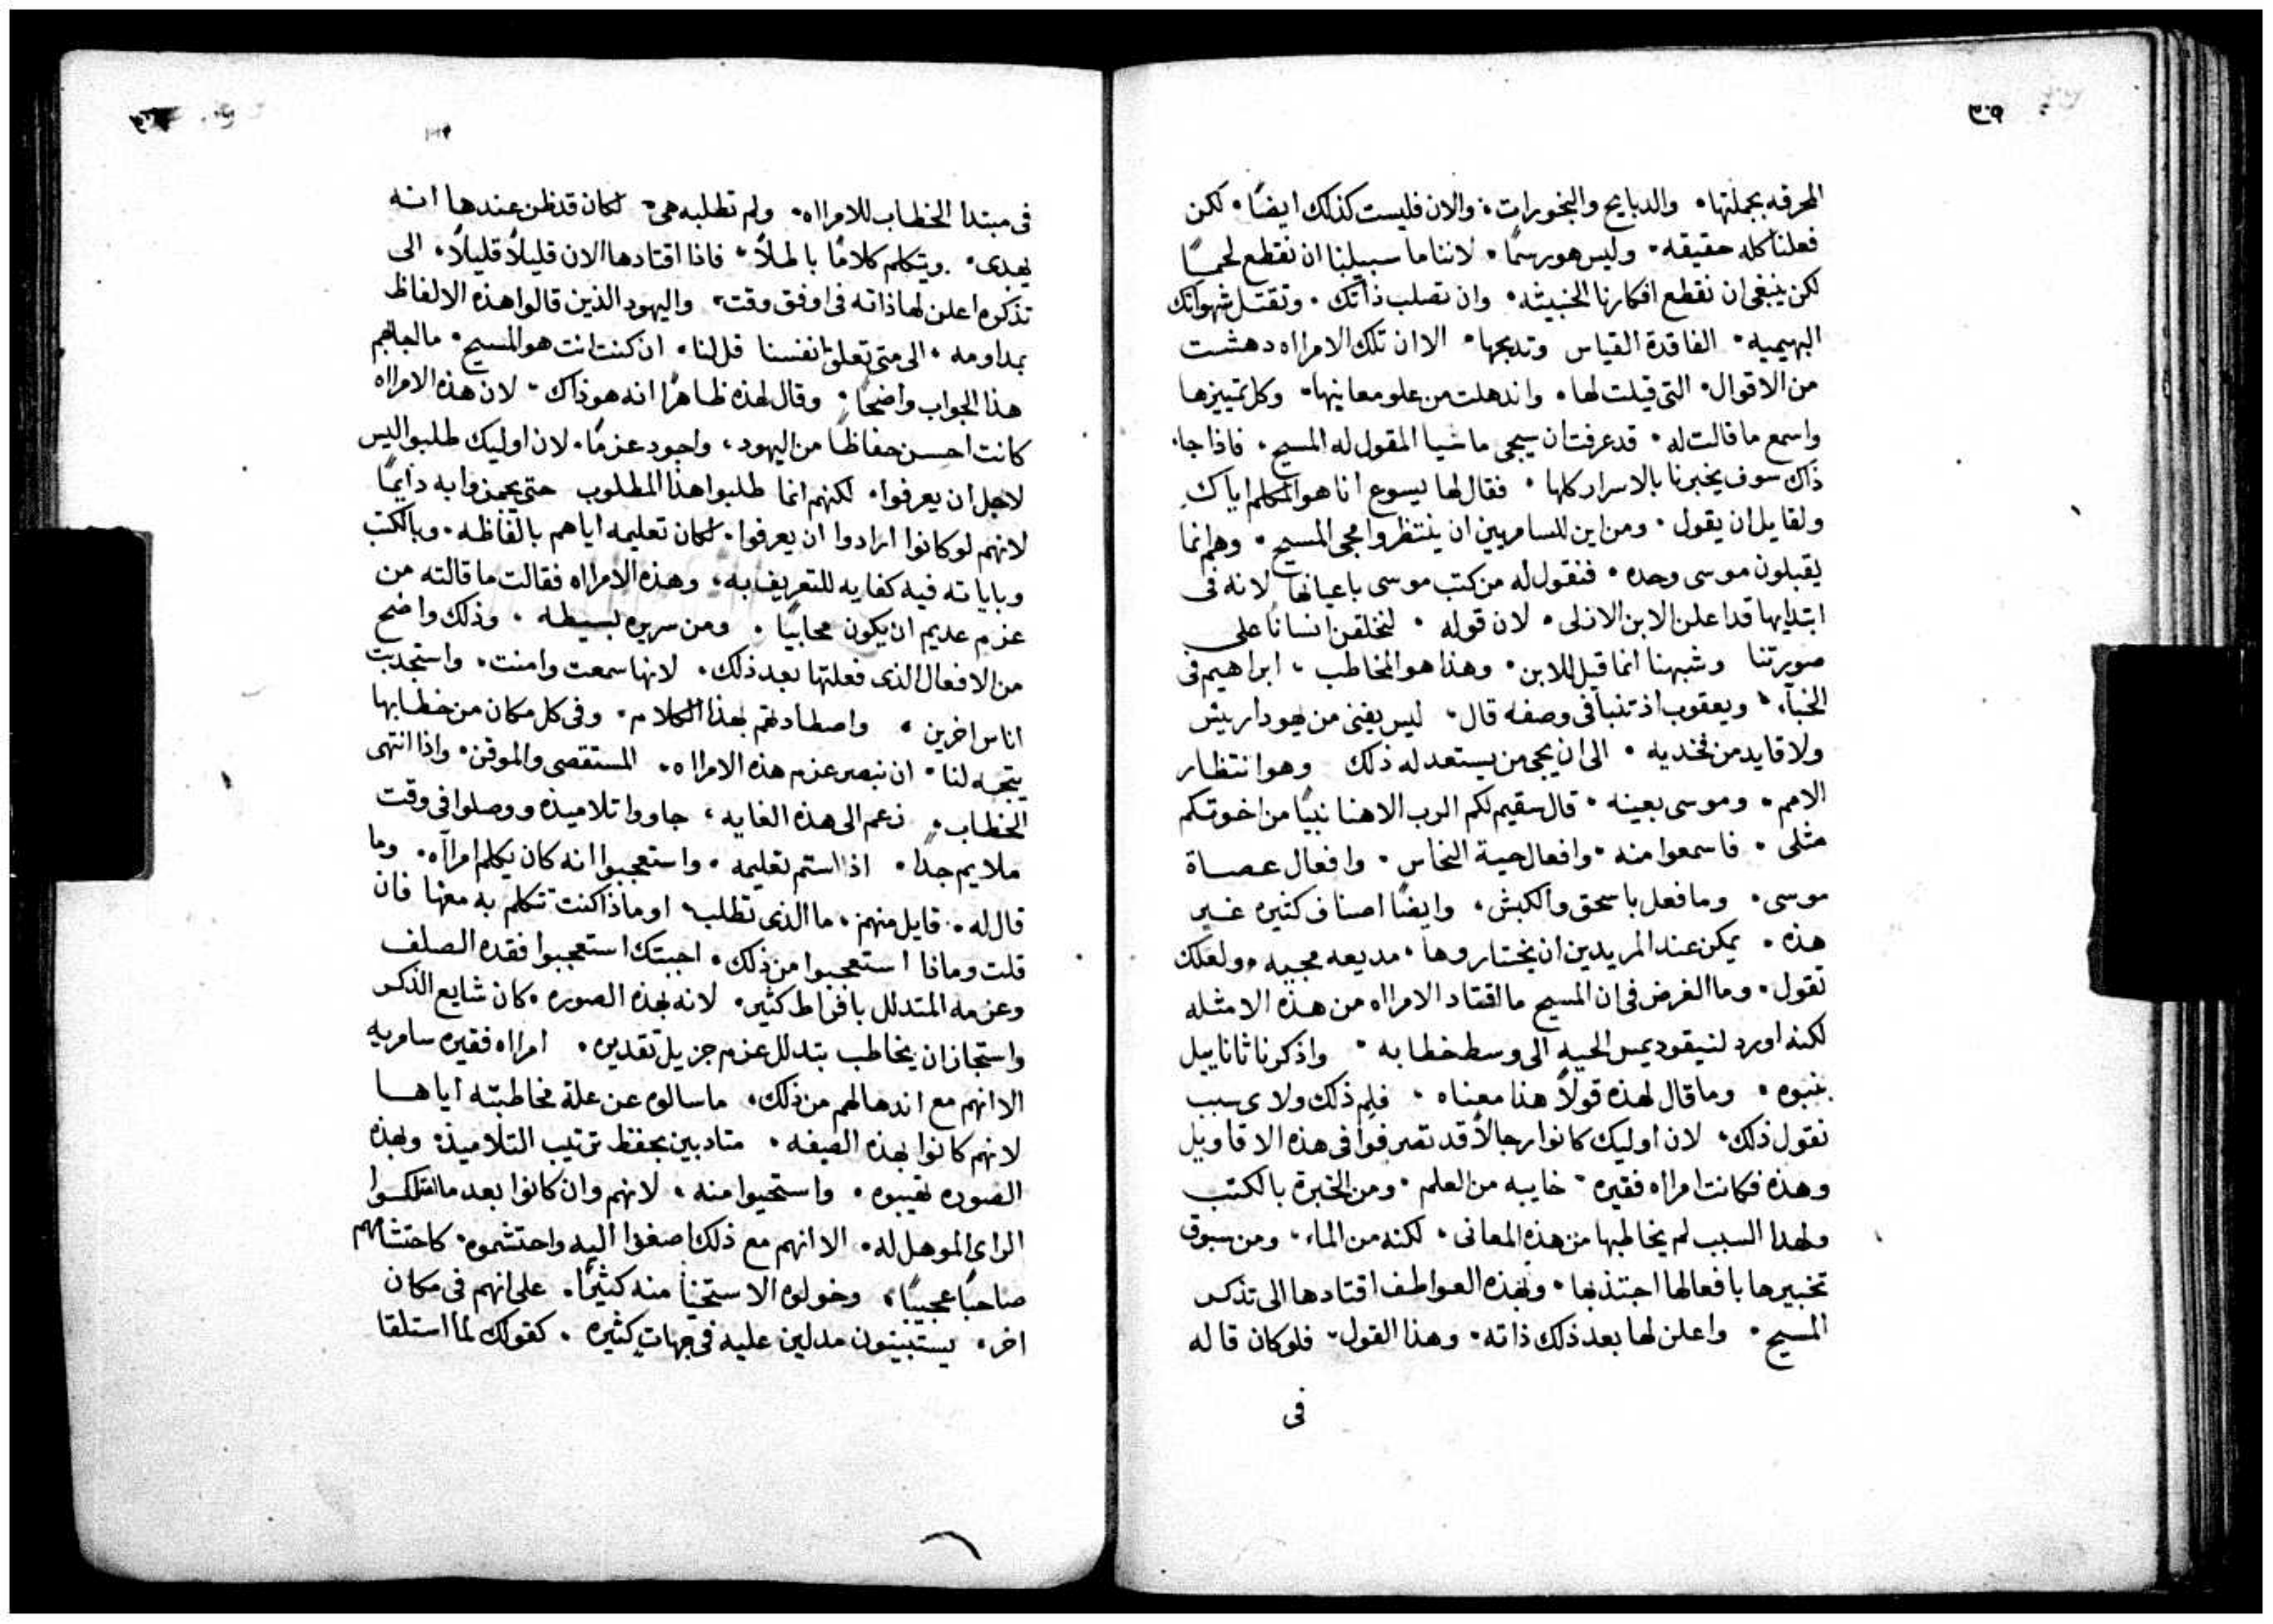 ٣٠٩
المحرقه بجملتها٠ والدبايح والبخورات٠ والان فليست كذلك ايضًا٠ لكن
فعلنا كله حقيقه٠ وليس هو رسمًا٠ لاننا ما سبيلنا ان نقطع لحمًا
لكن ينبغى ان نقطع افكارنا الخبيثه٠ وان تصلب ذاتك٠ وتقتل شهواتك
البهيميه٠ الفاقدة القياس وتدبحها٠ الا ان تلك الامرااه دهشت
من الاقوال٠ التى قيلت لها٠ واندهلت من علو معانيها٠ وكل تمييزها
واسمع ما قالت له٠ قد عرفت ان سيجى ماشيا المقول له المسيح٠ فاذا جا٠
ذاك سوف يخبرنا بالاسرار كلها٠ فقال لها يسوع انا هو المكلم اياك
ولقايل ان يقول٠ ومن اين للسامريين ان ينتظروا مجى المسيح٠ وهم انما
يقبلون موسى وحده٠ فنقول له من كتب موسى باعيانها لانه فى
ابتدايها قد اعلن الابن الازلى٠ لان قوله٠ لنخلقن انسانًا على
صورتنا وشبهنا انما قيل للابن٠ وهذا هو المخاطب٠ ابراهيم فى
الخبآ٠ ويعقوب اذ تنبا فى وصفه قال٠ ليس يفنى من يهودا ريس
ولا قايد من فخديه٠ الى ان يجى من يستعد له ذلك وهو انتظار
الامم٠ وموسى بعينه٠ قال سقيم لكم الرب الاهنا نبيًا من اخوتكم
مثلى٠ فاسمعوا منه٠ وافعال حية النحاس٠ وافعال عصاة
موسى٠ وما فعل باسحق والكبش٠ وايضًا اصناف كثيره غير
هذه٠ يمكن عند المريدين ان يختاروها٠ مديعه مجيه٠ ولعلك
تقول٠ وما الغرض فى ان المسيح ما اقتاد الامرااه من هذه الامثله
لكنه اورد لنيقوديمس الحيه الى وسط خطابه٠ واذكر ناثاناييل
بنبوه٠ وما قال لهذه قولًا هذا معناه٠ فلم ذلك ولاى سبب
نقول ذلك٠ لان اوليك كانوا رجالًا قد تصرفوا فى هذه الاقاويل
وهذه فكانت امرااه فقيره٠ خايبه من العلم٠ ومن الخبرة بالكتب
ولهدا السبب لم يخاطبها من هذه المعانى٠ لكنه من الماء٠ ومن سبوق
تخبيرها بافعالها اجتذبها٠ وبهذه العواطف اقتادها الى تذكر
المسيح٠ واعلن لها بعد ذلك ذاته٠ وهذا القول٠ فلو كان قاله
فى
فى مبتدا الخطاب للامرااه٠ ولم تطلبه هى٠ لكان قد ظن عندها انه
يهدى٠ ويتكلم كلامًا باطلًا٠ فاذا اقتادها الان قليلًا قليلًا٠ الى
تذكره اعلن لها ذاته فى اوفق وقت٠ واليهود الذين قالوا هذه الالفاظ
بمداومه٠ الى متى تعلق انفسنا قل لنا٠ ان كنت انت هو المسيح٠ ما اجابهم
هذا الجواب واضحًا٠ وقال لهذه ظاهرًا انه هو ذاك٠ لان هذه الامرااه
كانت احسن حفاظًا من اليهود٠ واجود عزمًا٠ لان اوليك طلبوا ليس
لاجل ان يعرفوا٠ لكنهم انما طلبوا هذا المطلوب حتى يحمزوا به دايمًا
لانهم لو كانوا ارادوا ان يعرفوا٠ لكان تعليمه اياهم بالفاظه٠ وبالكتب
وباياته فيه كفايه للتعريف به٠ وهذه الامرااه فقالت ما قالته من
عزم عديم ان يكون محابيًا٠ ومن سريره بسيطه٠ وذلك واضح
من الافعال الذى فعلتها بعد ذلك٠ لانها سمعت وامنت٠ واستجدبت
اناس اخرين٠ واصطادتهم بهذا الكلام٠ وفى كل مكان من خطابها
يتجه لنا٠ ان نبصر عزم هذه الامرااه٠ المستقصى والموقن٠ واذا انتهى
الخطاب٠ زعم الى هذه الغايه٠ جاووا تلاميذه ووصلوا فى وقت
ملايم جدًا٠ اذا استم تعليمه٠ واستعجبوا انه كان يكلم امرآه٠ وما
قال له٠ قايل منهم٠ ما الذى تطلب٠ او ماذا كنت تتكلم به معها فان
قلت وماذا استعجبوا من ذلك٠ اجبتك استعجبوا فقده الصلف
وعزمه المتدلل بافراط كثير٠ لانه بهذه الصوره٠ كان شايع الذكر
واستجاز ان يخاطب بتدلل عزم جزيل تقديره٠ امرااه فقيره سامريه
الا انهم مع اندهالهم من ذلك٠ ما سالوه عن علة مخاطبته اياها
لانهم كانوا بهذه الصيفه٠ متادبين بحفظ ترتيب التلاميذ٠ وبهذه
الصوره تهيبوه٠ واستحيوا منه٠ لانهم وان كانوا بعد ما امتلكوا
الراى الموهل له٠ الا انهم مع ذلك اصغوا اليه واحتشموه٠ كاحتشامهم
صاحبًا عجيبًا٠ وخولوه الاستحيآ منه كثيرًا٠ على انهم فى مكان
اخر٠ يستبينون مدلين عليه فى جهاتٍ كثيره٠ كقولك لما استلقا